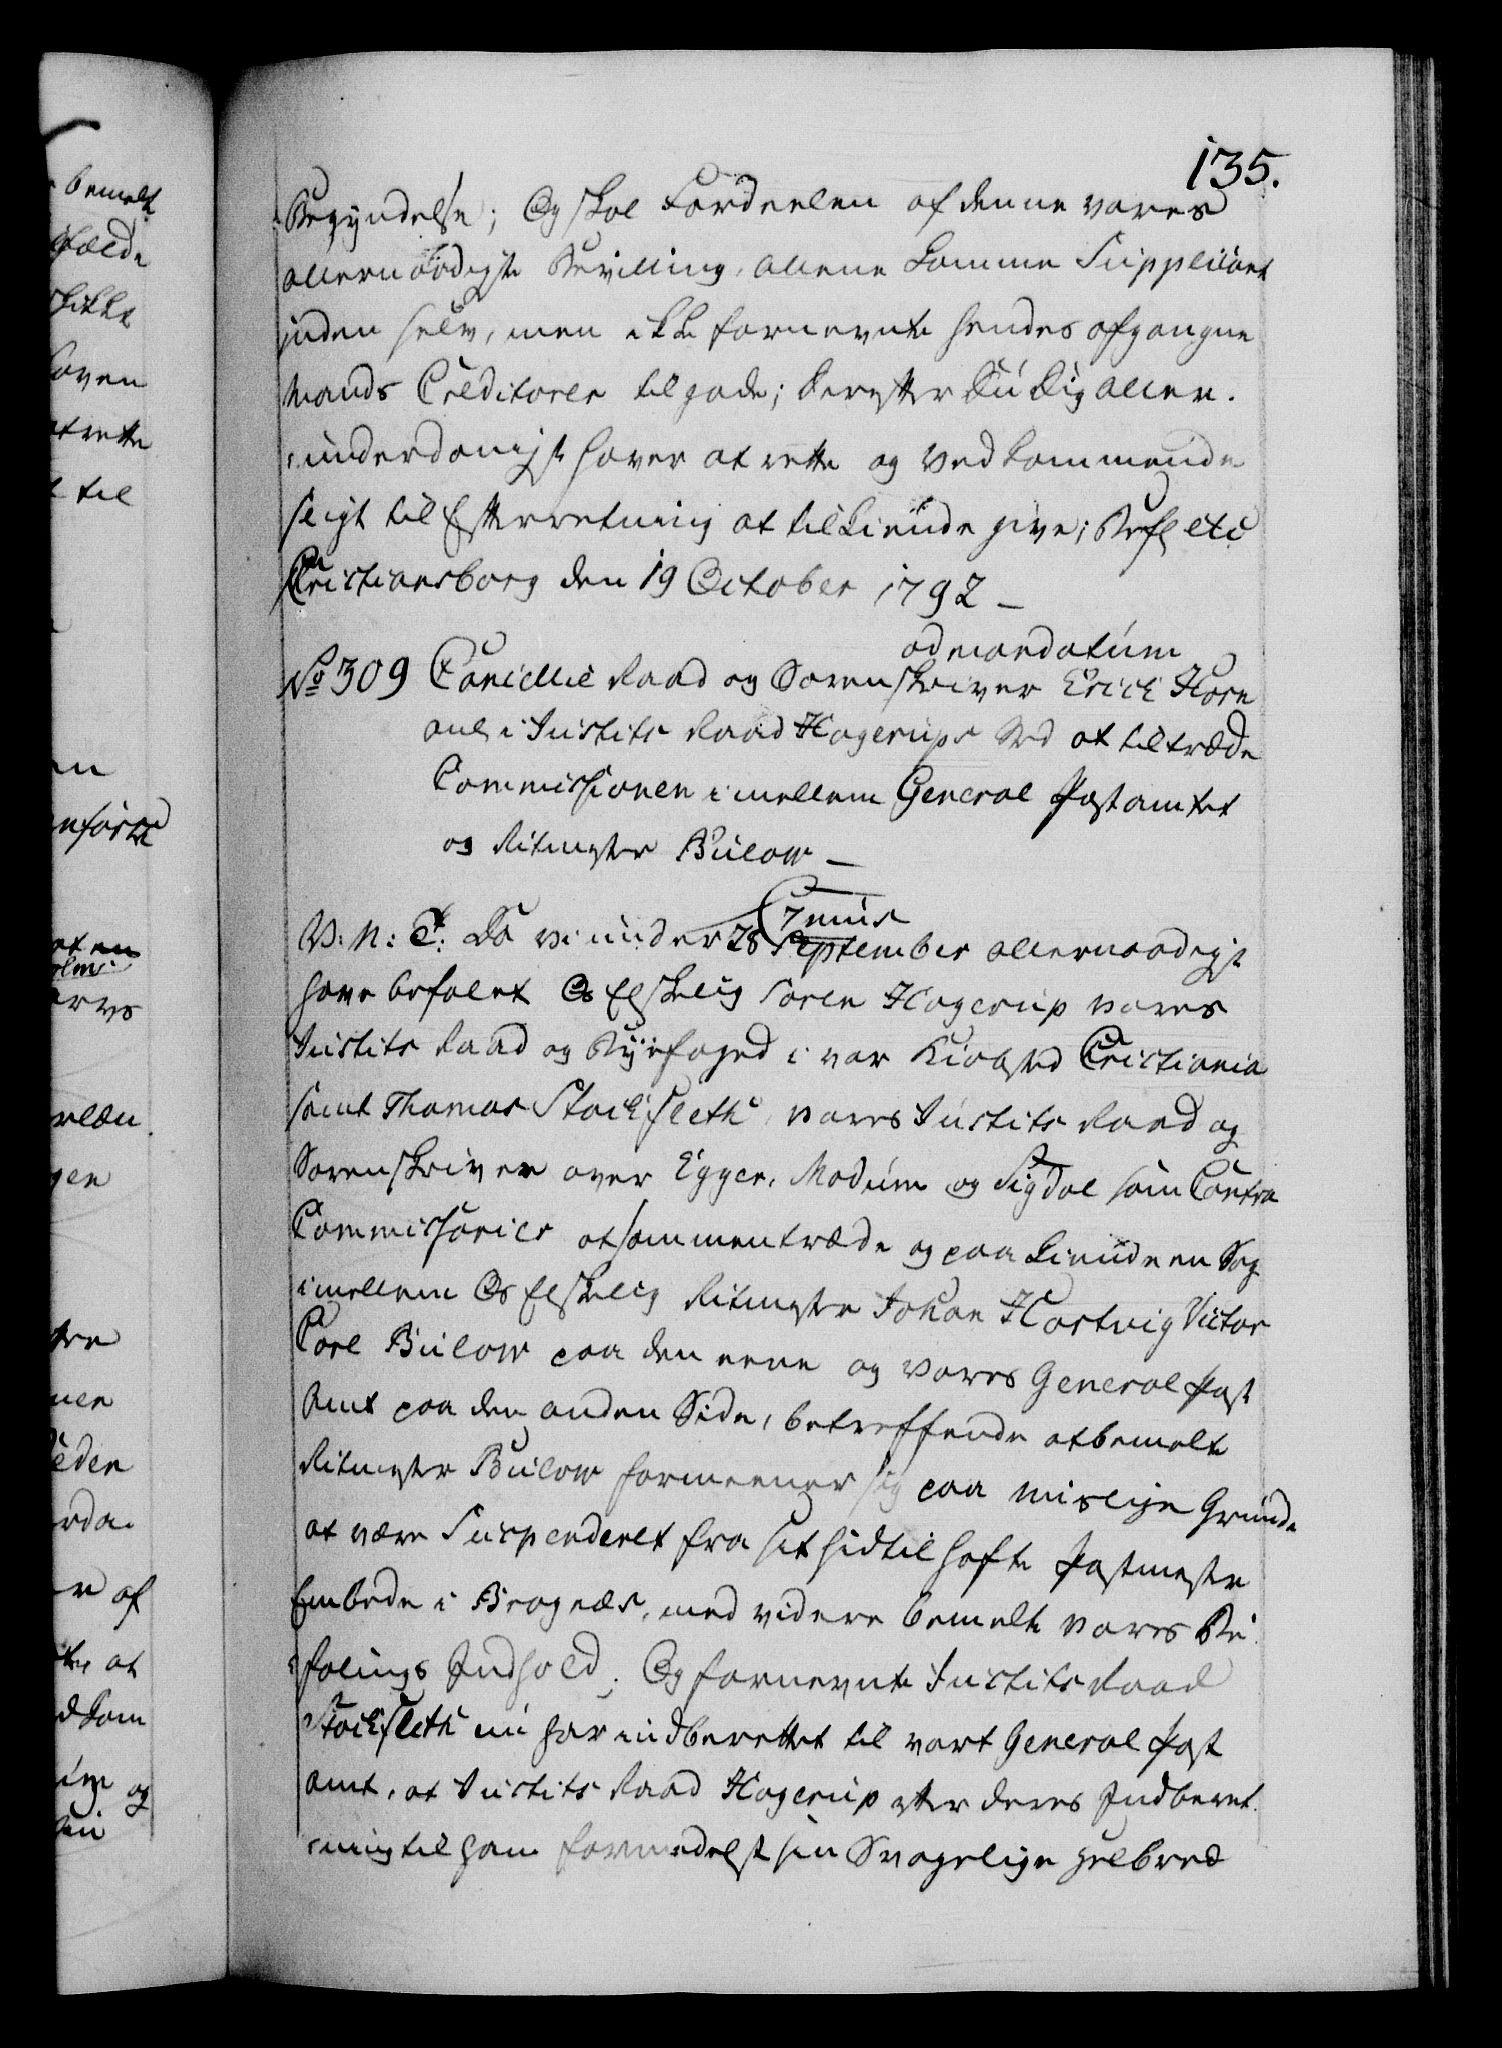 135.
Begyndelse; Og skal Fordeelen af denne vores
allernaadigste Bevilling, allene komme Supplicant
inden selv, men ikke fornevnte hendes afgangne
Mands Creditorer til gode; derefter du dig aller-
underdanigst haver at rette og vedkommende
sligt til Efterretning at tilkiende give; Befl etc
Christiansborg den 19 October 1792 –
ad mandatum
No 309 Cancellie Raad og Sorenskriver Erich Horn
anl i Justits Raad Hagerups Sted at tiltræde
Commissionen imellem General Postamtet
og Ritmester Bülow –
V: N: T: Da vi under 28 7mi
September allernaadigst
have befalet Os Elskelig Soren Hagerup vores
Justits Raad og Byefoged i vor Kiøbsted Christiania
samt Thomas Stockfleth, vores Justits Raad og
Sorenskriver over Egger, Modum og Sigdal som Contra
Commissarier at sammentræde og paa kiende en Sag
imellem Os Elskelig Ritmester Johan Hartvig Victor
Carl Bülow paa den eene og vores General Post
Amt paa den anden Side, betreffende at bemelte
Ritmester Bülow formeener sig paa mislige Grunde
at være Suspenderet fra sit hidtil hafte Postmester
Embede i Bragnæs, med videre bemelte vores Be-
falings Indhold; Og fornevnte Justits Raad
Stockfleth nu har indberettet til vort General Post
amt, at Justits Raad Hagerup efter deres Indberet-
ning til ham formedelst sin Svagelige Helbred